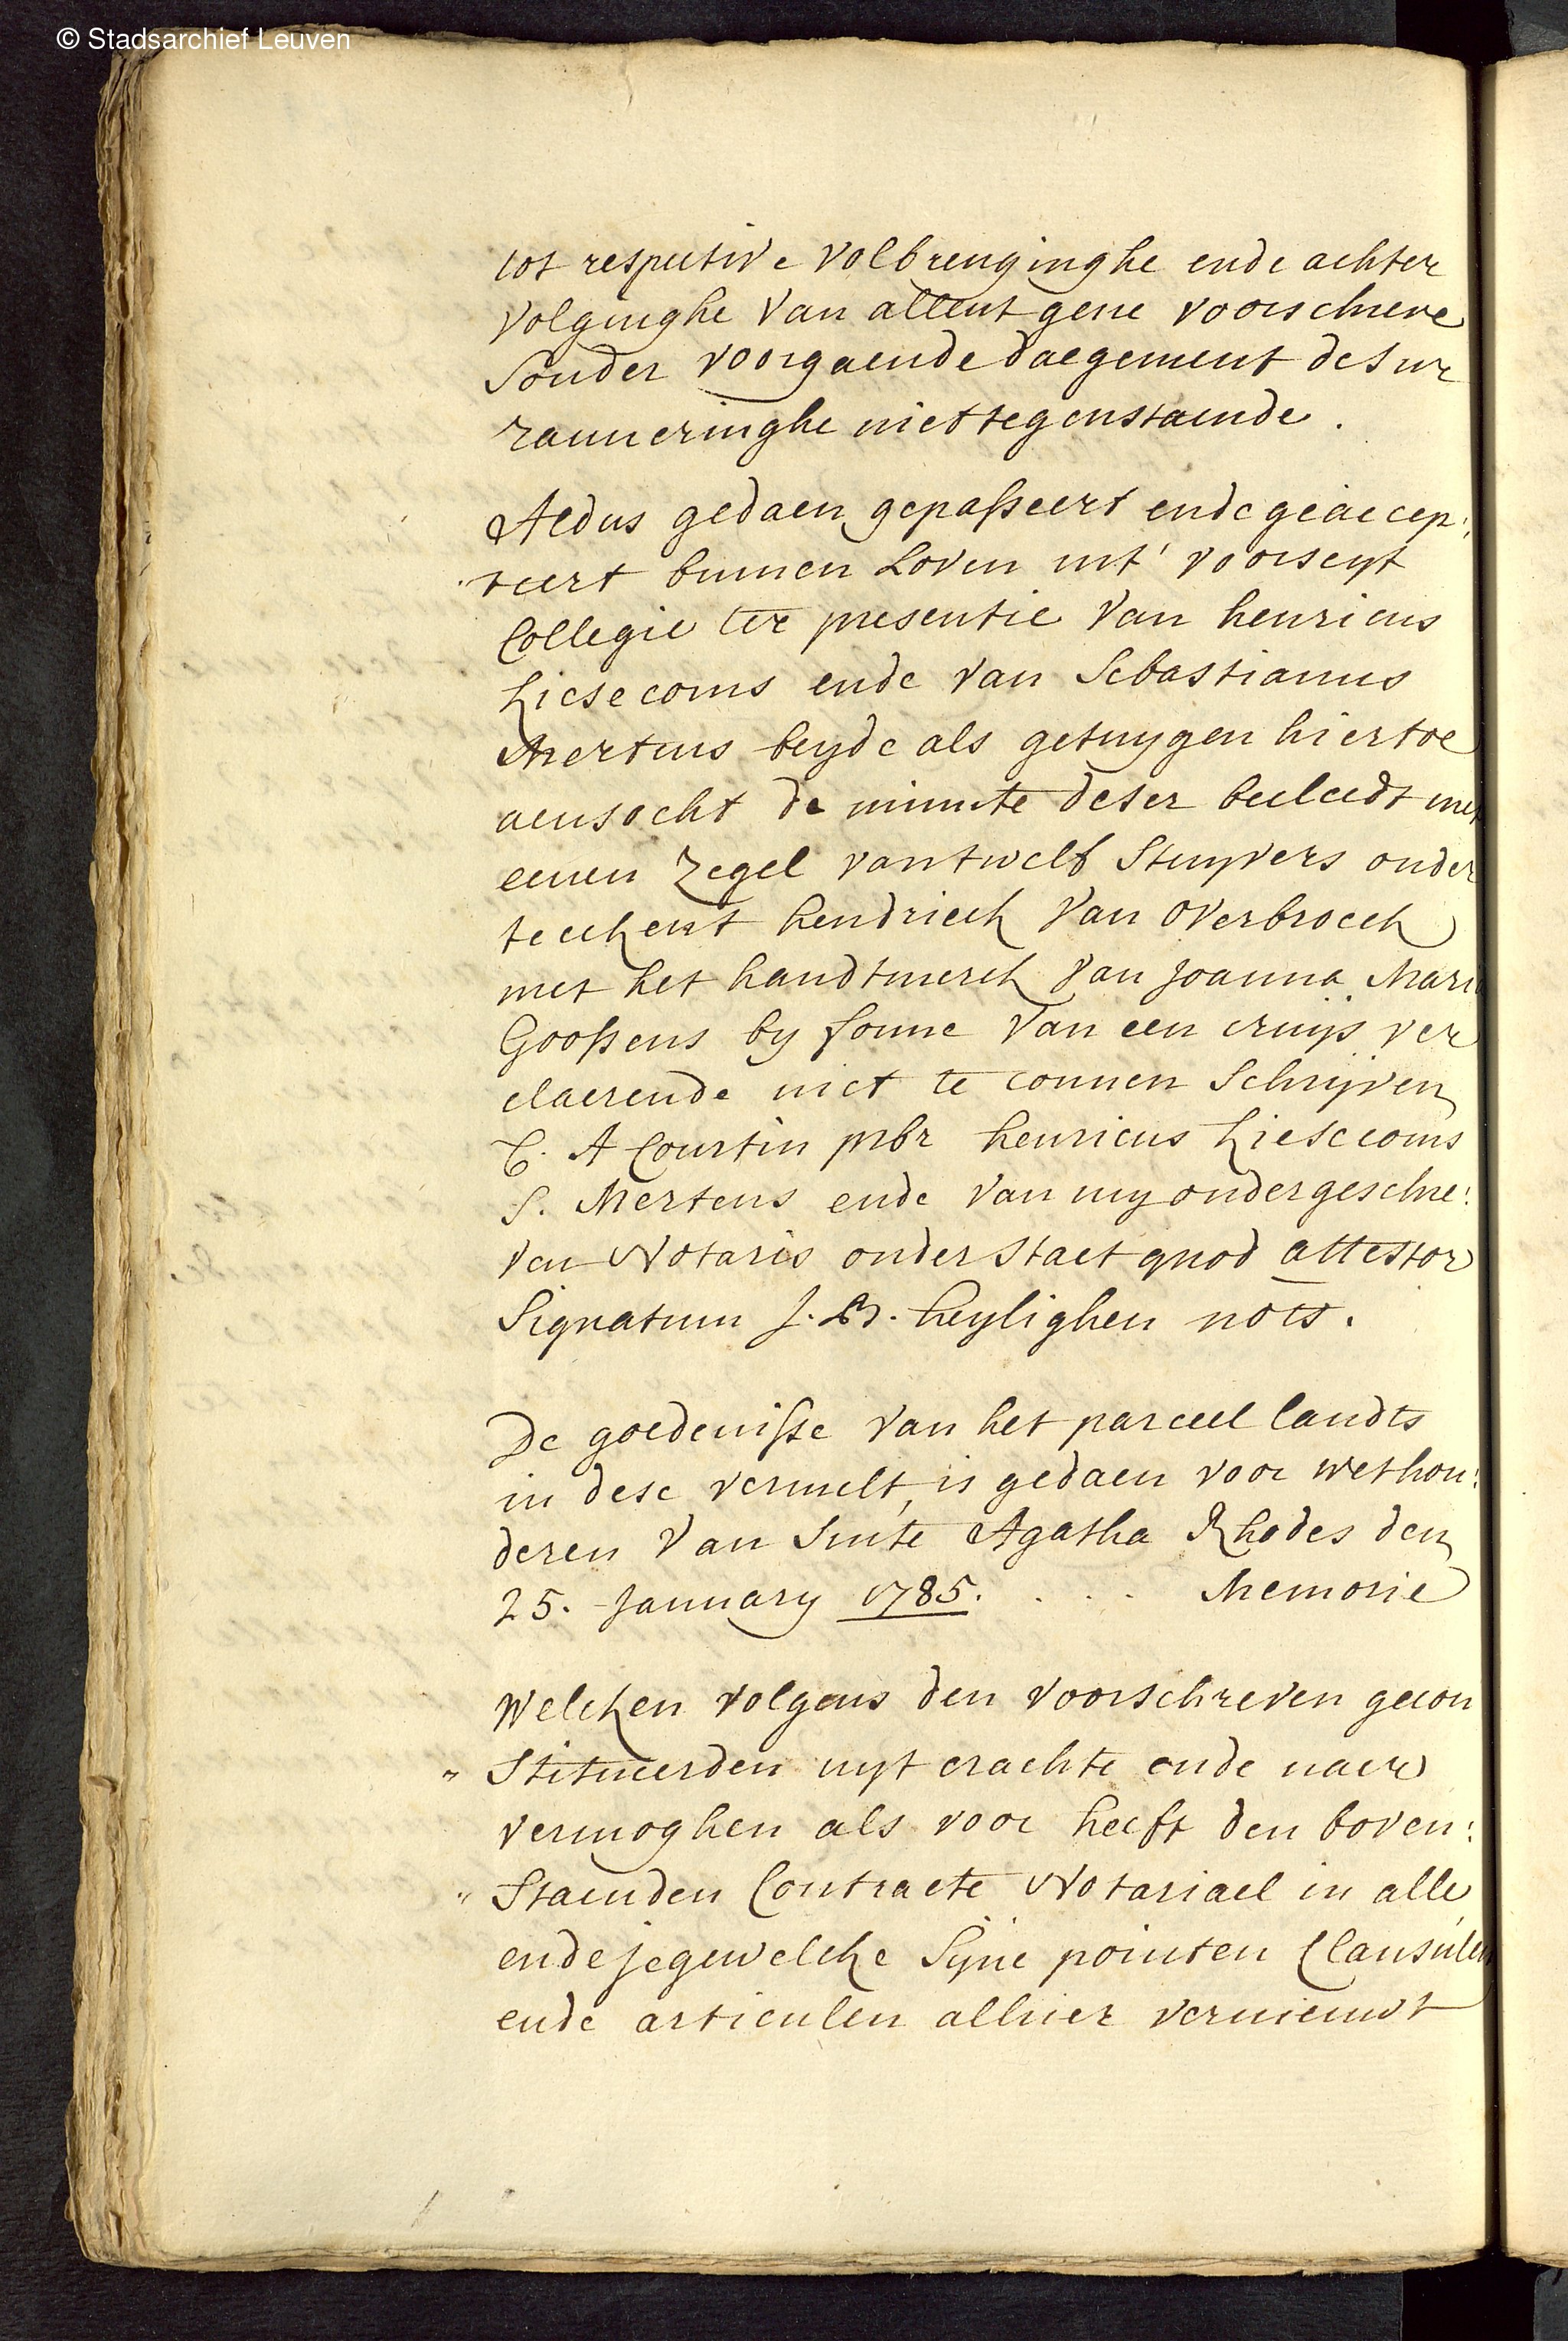 © Stadsarchief Leuven
tot respective volbrenginghe ende achter
volginghe van allent gene voorschreve
Sonder voorgaende daegement desur
ranneringhe niettegenstaende .
Aldus gedaen gepasseert ende geaccep:
teert binnen Loven int' voorseyt
Collegie ter presentie van henricus
Liesecoms ende van Sebastianus
Mertens beyde als getuygen hiertoe
aensocht de minute deser beleedt met
eenen Zegel van twelf Stuyvers onder
teeckent hendrick van overbroeck
met het handtmerck van Joanna Mari
Goossens by forme van een cruijs ver
claerende niet te connen Schrijven
C. A Courtin pbr henricus Liesecoms
S. Mertens ende van my ondergeschre:
ven Notaris onderstaet quod attestor
Signatum J. B. heylighen nots.
De goedenisse van het parceel landts
in dese vermelt, is gedaen voor wethou:
deren van Sinte Agatha Rhodes den
25. January 1785. . . . Memorie
Welcken volgens den voorschreven gecon
" Stitueerden uyt crachte ende naer
vermoghen als voor heeft den boven:
" Staenden Contracte Notariael in alle
ende jegewelcke Syne pointen Clausulen
ende articulen alhier vernieuwt